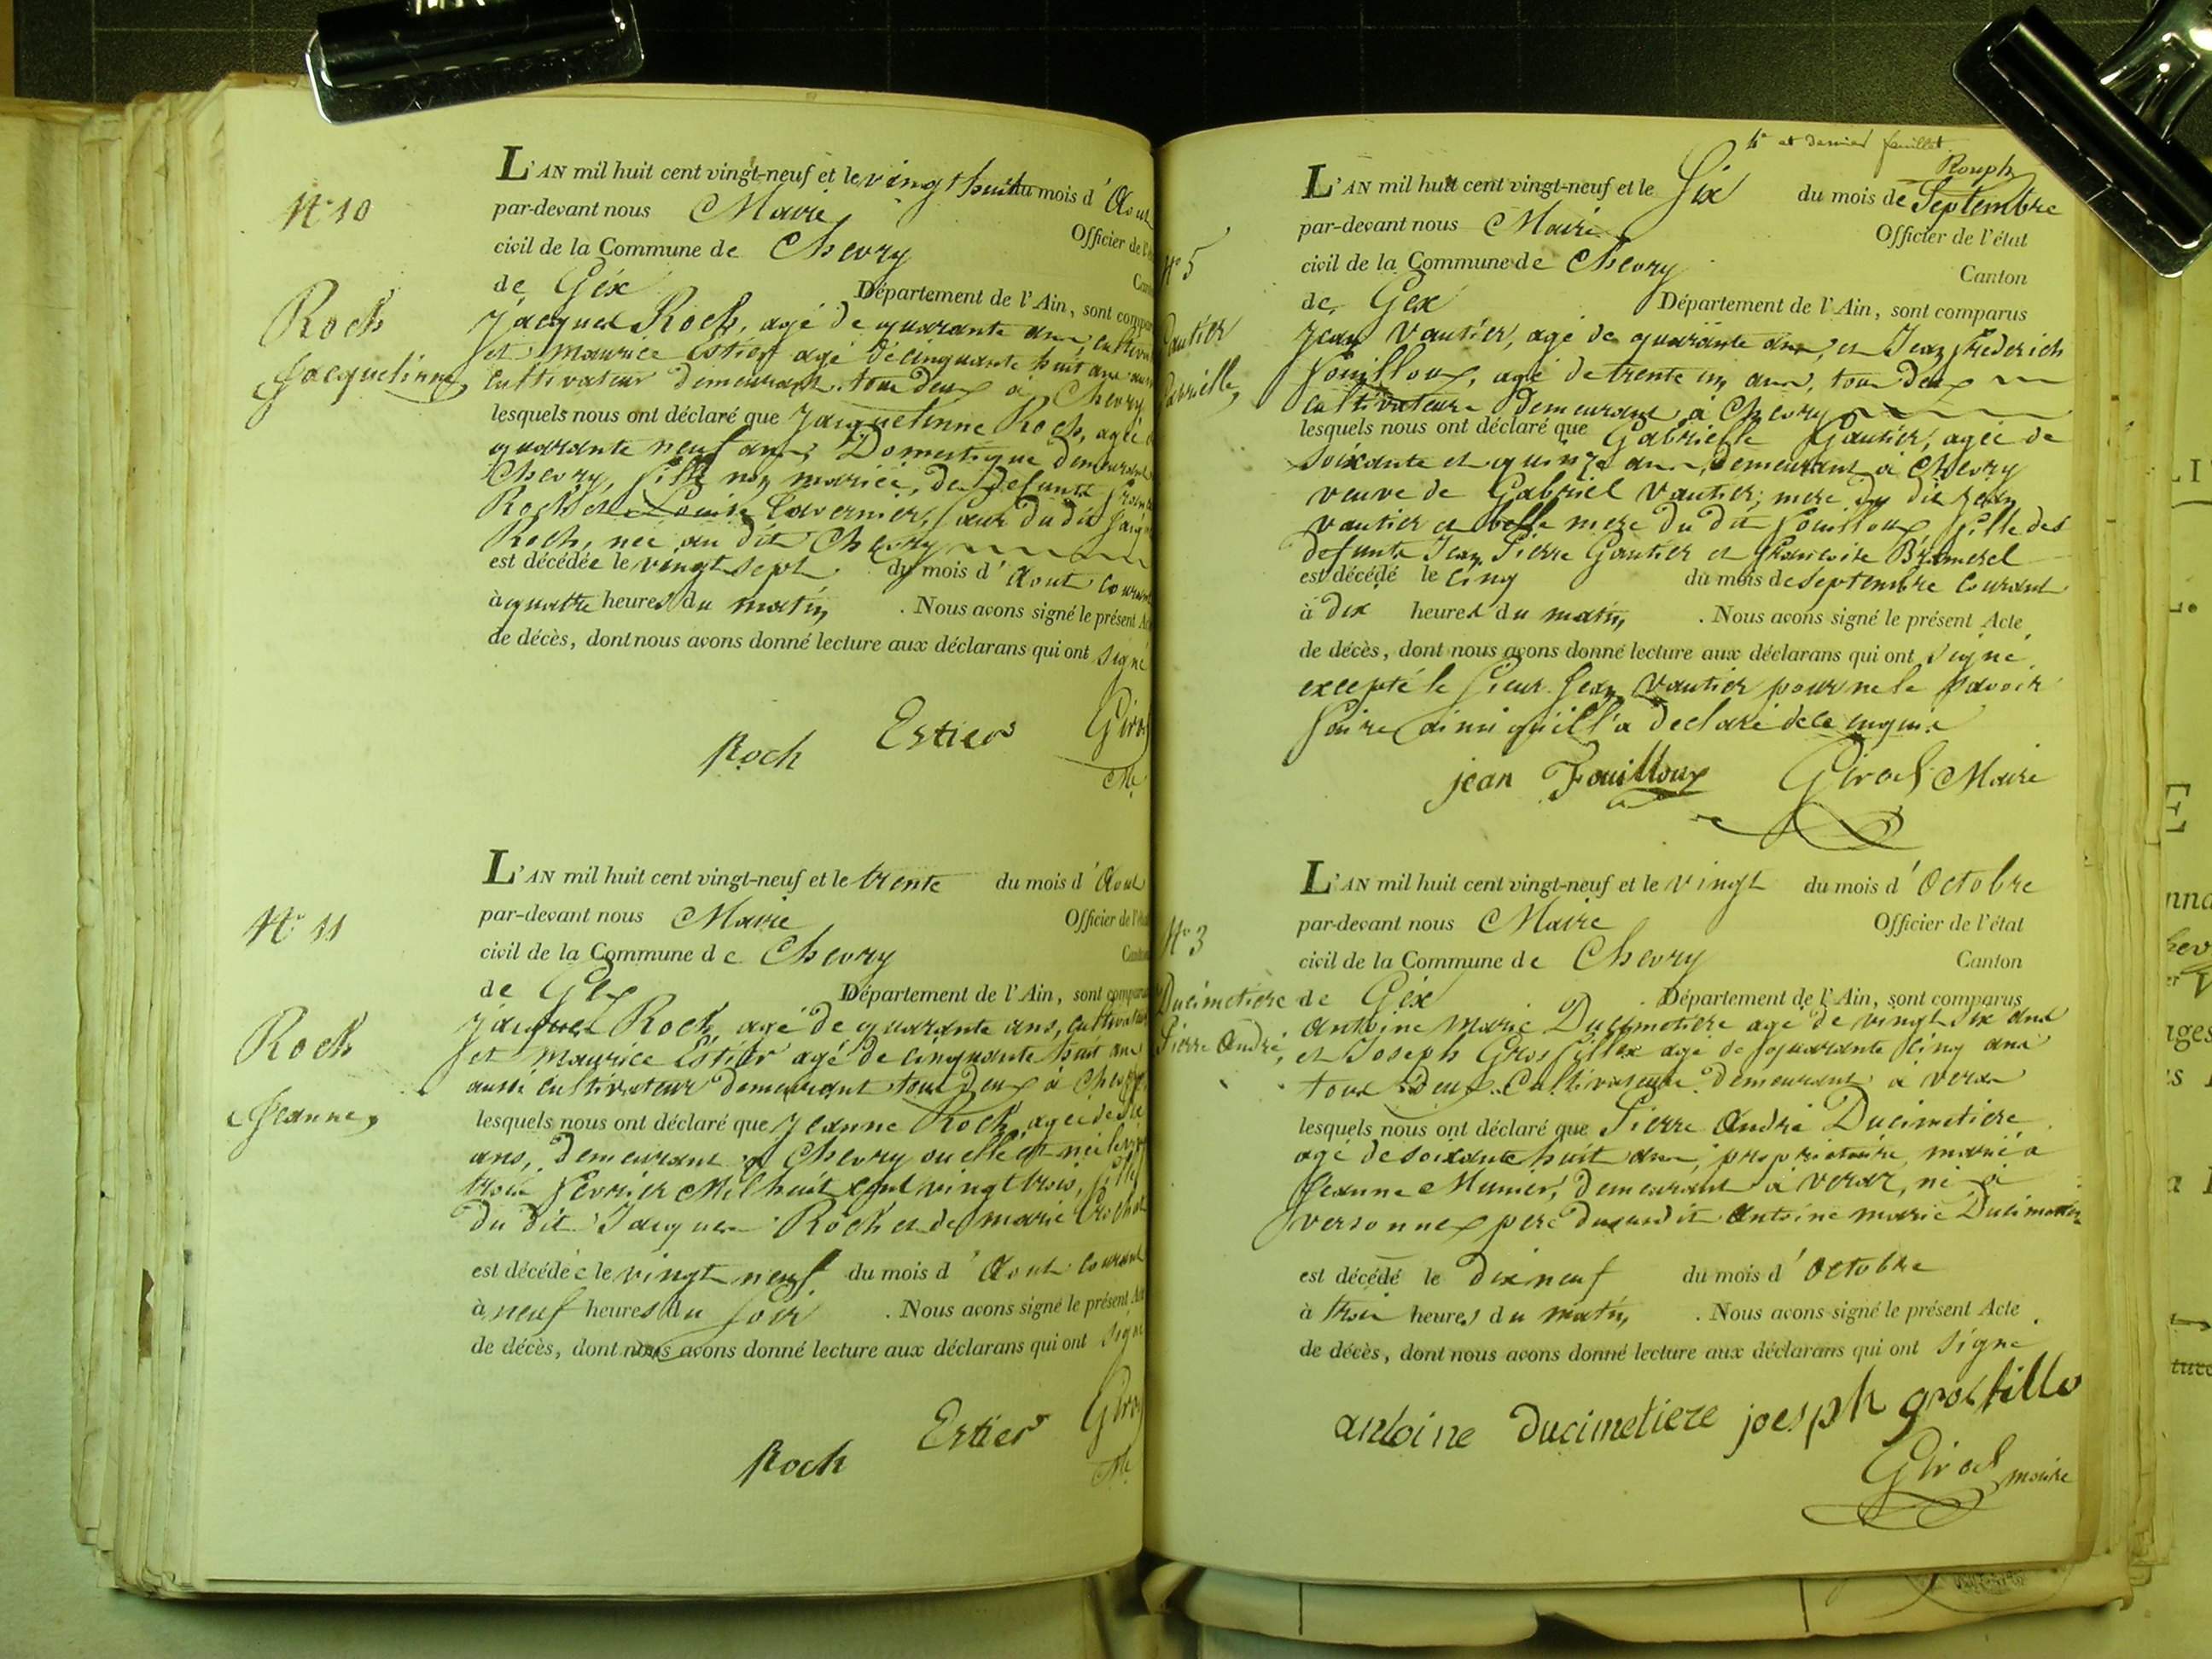 N° 10
Roch
Jacquelinne
L'AN mil huit cent vingt-neuf et le vingt huit du mois d'Aout
par-devant nous Maire Officier de l'é
civil de la Commune de Chevry
de Gex Département de l'Ain, sont compar
Jacques Roch, agé de quarante ans, cultiva
et maurice Estier agé de cinquante huit ans aussi
cultivateur demeurant tous deux à Chevry
lesquels nous ont déclaré que Jacquelinne Roch, agée d
quarante neuf ans, Domestique demeurant
Chevry, fille non mariée, de defunts
Roch et Louise Tavernier, sœur du dit Jacq
Roch, née au dit Chevry
est décédée le vingt sept du mois d'Aout courant
à quatre heures du matin . Nous avons signé le présent Ac
de décès, dont nous avons donné lecture aux déclarans qui ont signé
Roch Estier Girod
M
N° 11
Roch
Jeanne
L'AN mil huit cent vingt-neuf et le trente du mois d'Aout
par-devant nous Maire Officier de l'éta
civil de la Commune de Chevry Canton
de Gex Département de l'Ain, sont comparu
Jacques Roch, agé de quarante ans, cultivateur
et maurice Estier agé de cinquante huit ans
aussi cultivateur demeurant tous deux à Chevry
lesquels nous ont déclaré que Jeanne Roch, agée de six
ans, demeurant à Chevry ou elle est née le vingt
trois fevrier Mil huit cent vingt trois, fille
du dit Jacques Roch et de marie
est décédée le vingt neuf du mois d'Aout courant
à neuf heures du soir . Nous avons signé le présent Act
de décès, dont nous avons donné lecture aux déclarans qui ont signé
Roch Estier Girod
M
4e et dernier feuillet
Rouph
N° 5
Gautier
Gabrielle
L'AN mil huit cent vingt-neuf et le Six du mois de Septembre
par-devant nous Maire Officier de l'état
civil de la Commune de Chevry Canton
de Gex Département de l'Ain, sont comparus
Jean Vautier, agé de quarante ans, et Jean frederich
fouilloux, agé de trente un ans, tous deux
cultivateurs demeurant à Chevry
lesquels nous ont déclaré que Gabrielle Gautier, agée de
soixante et quinze ans, demeurant à Chevry
veuve de Gabriel Vautier, mere du dit Jean
Vautier et belle mere du dit fouilloux fille des
defunts Jean Pierre Gautier et francoise Bramerel
est décédé le cinq du mois de septembre courant
à dix heures du matin . Nous avons signé le présent Acte
de décès, dont nous avons donné lecture aux déclarans qui ont signé
excepté le sieur Jean Vautier pour ne le savoir
faire ainsi qu'il l'a declaré de ce enquis
jean Fouilloux Girod Maire
N° 3
Ducimetiere
Pierre André
L'AN mil huit cent vingt-neuf et le vingt du mois d'Octobre
par-devant nous Maire Officier de l'état
civil de la Commune de Chevry Canton
de Gex . Département de l'Ain, sont comparus
Antoine Marie Ducimetiere agé de vingt six ans
et Joseph Grosfillex agé de quarante cinq ans
tous deux Cultivateurs demeurant à veraz
lesquels nous ont déclaré que Pierre André Ducimetiere
agé de soixante huit ans, propriétaire, marié à
Jeanne Munier, demeurant à veraz, né à
versonnex pere du susdit Antoine marie Ducimetiere
est décédé le dix neuf du mois d'Octobre
à trois heures du matin . Nous avons signé le présent Acte
de décès, dont nous avons donné lecture aux déclarans qui ont signé
antoine ducimetiere joesph grosfille
Girod maire